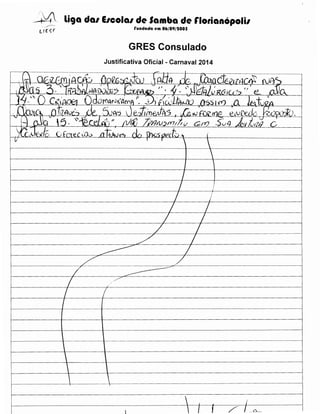 Liga das Escolas de Samba de Florianópolis
Fundada em 06/09/2005
LIESF
GRES Consulado
Justificativa Oficial - Carnaval 2014
A agremiação apresentou falta de caracterização nas
alas 3. "Trabalhadores"; 4. "Metalúrgicos" e ala
14. "O Criador", dificultando assim a leitura
clara através de suas vestimentas, conforme enredo proposto.
A ala 15. não transmitiu em sua leitura o
oferecido através do prospecto.